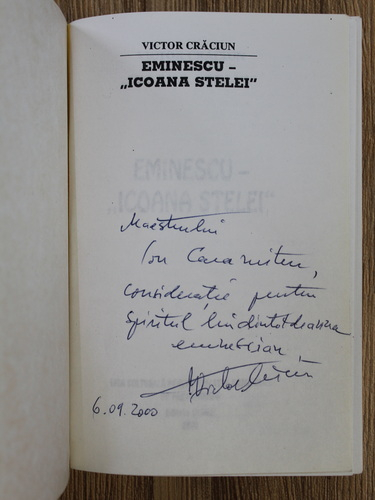 VICTOR CRĂCIUN
EMINESCU –
„ICOANA STELEI”
Maestrului
Ion Caramitru,
considerație pentru
Spiritul lui dintotdeauna
eminescian
Victor Crăciun
6.09.2000